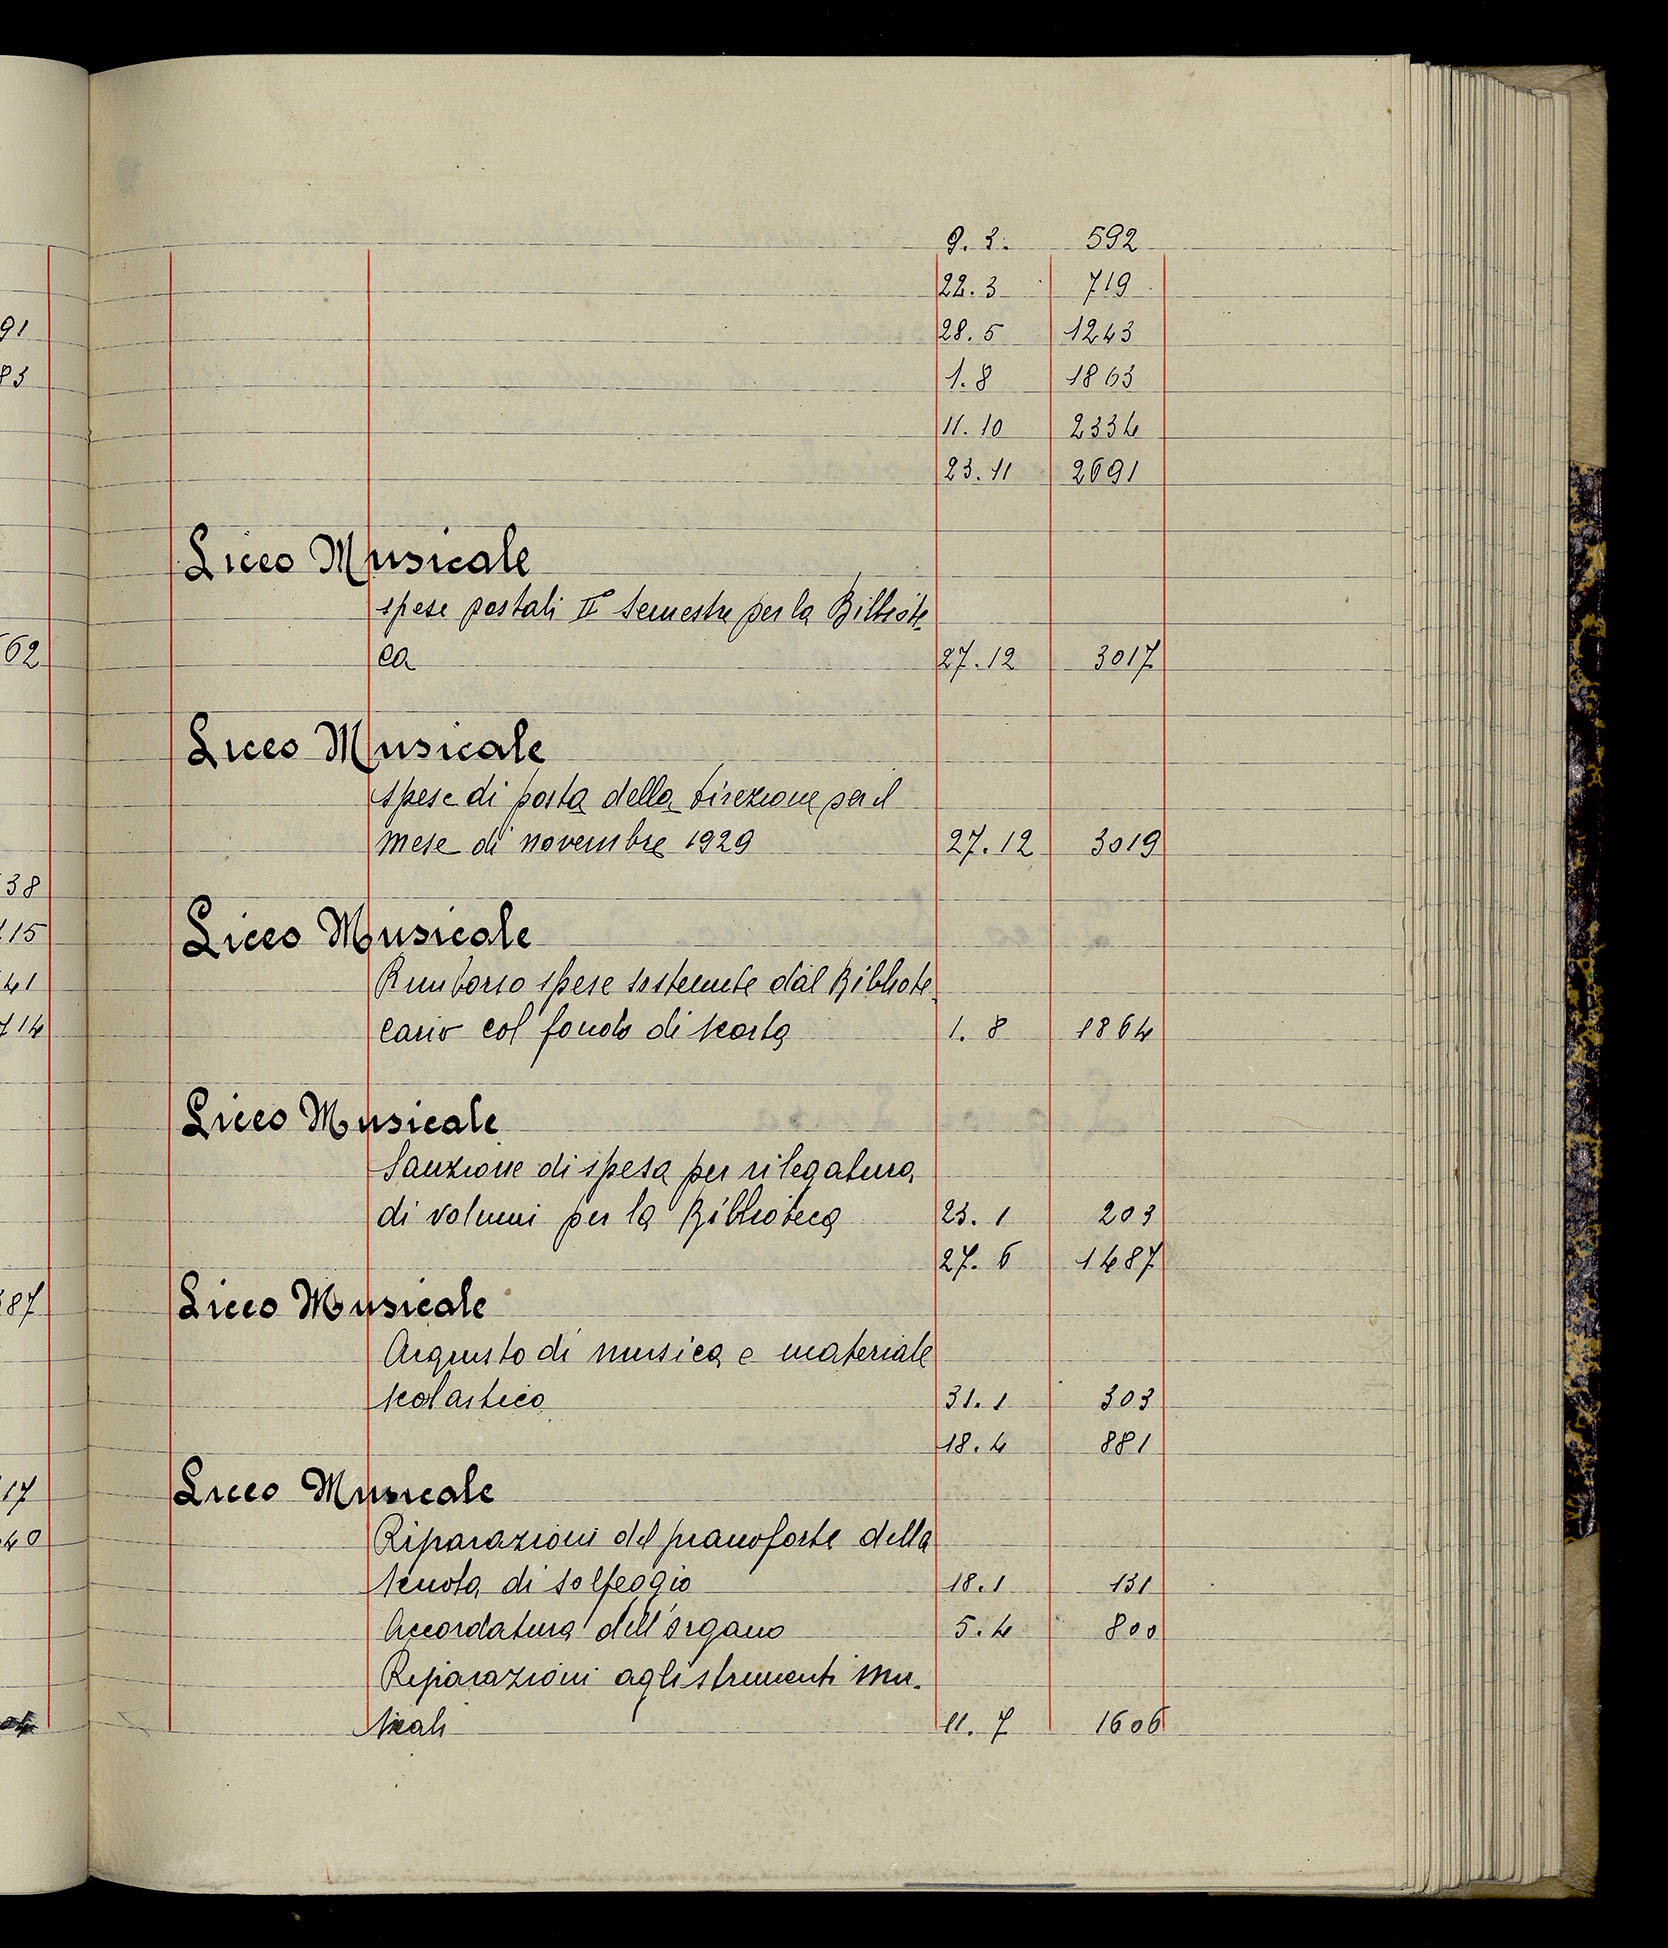 9. 3. 592
22. 3 719
28. 5 1243
1. 8 1863
11. 10 2334
23. 11 2691
Liceo Musicale
spese postali IIº Semestre per la Bibliote
ca 27. 12 3017
Liceo Musicale
spese di posta della Direzione per il
mese di novembre 1929 27. 12 3019
Liceo Musicale
Rimborso spese sostenute dal Bibliote
cario col fondo di scorta 1. 8 1864
Liceo Musicale
Sanzione di spesa per rilegatura
di volumi per la Biblioteca 23. 1 203
27. 6 1487
Liceo Musicale
Acquisto di musica e materiale
scolastico 31. 1 303
18. 4 881
Liceo Musicale
Riparazioni del pianoforte della
scuola di solfeggio 18. 1 131
Accordatura dell'organo 5. 4 800
Riparazioni agli strumenti mu-
sicali 11. 7 1606
91
83
62
38
15
41
14
87
17
40